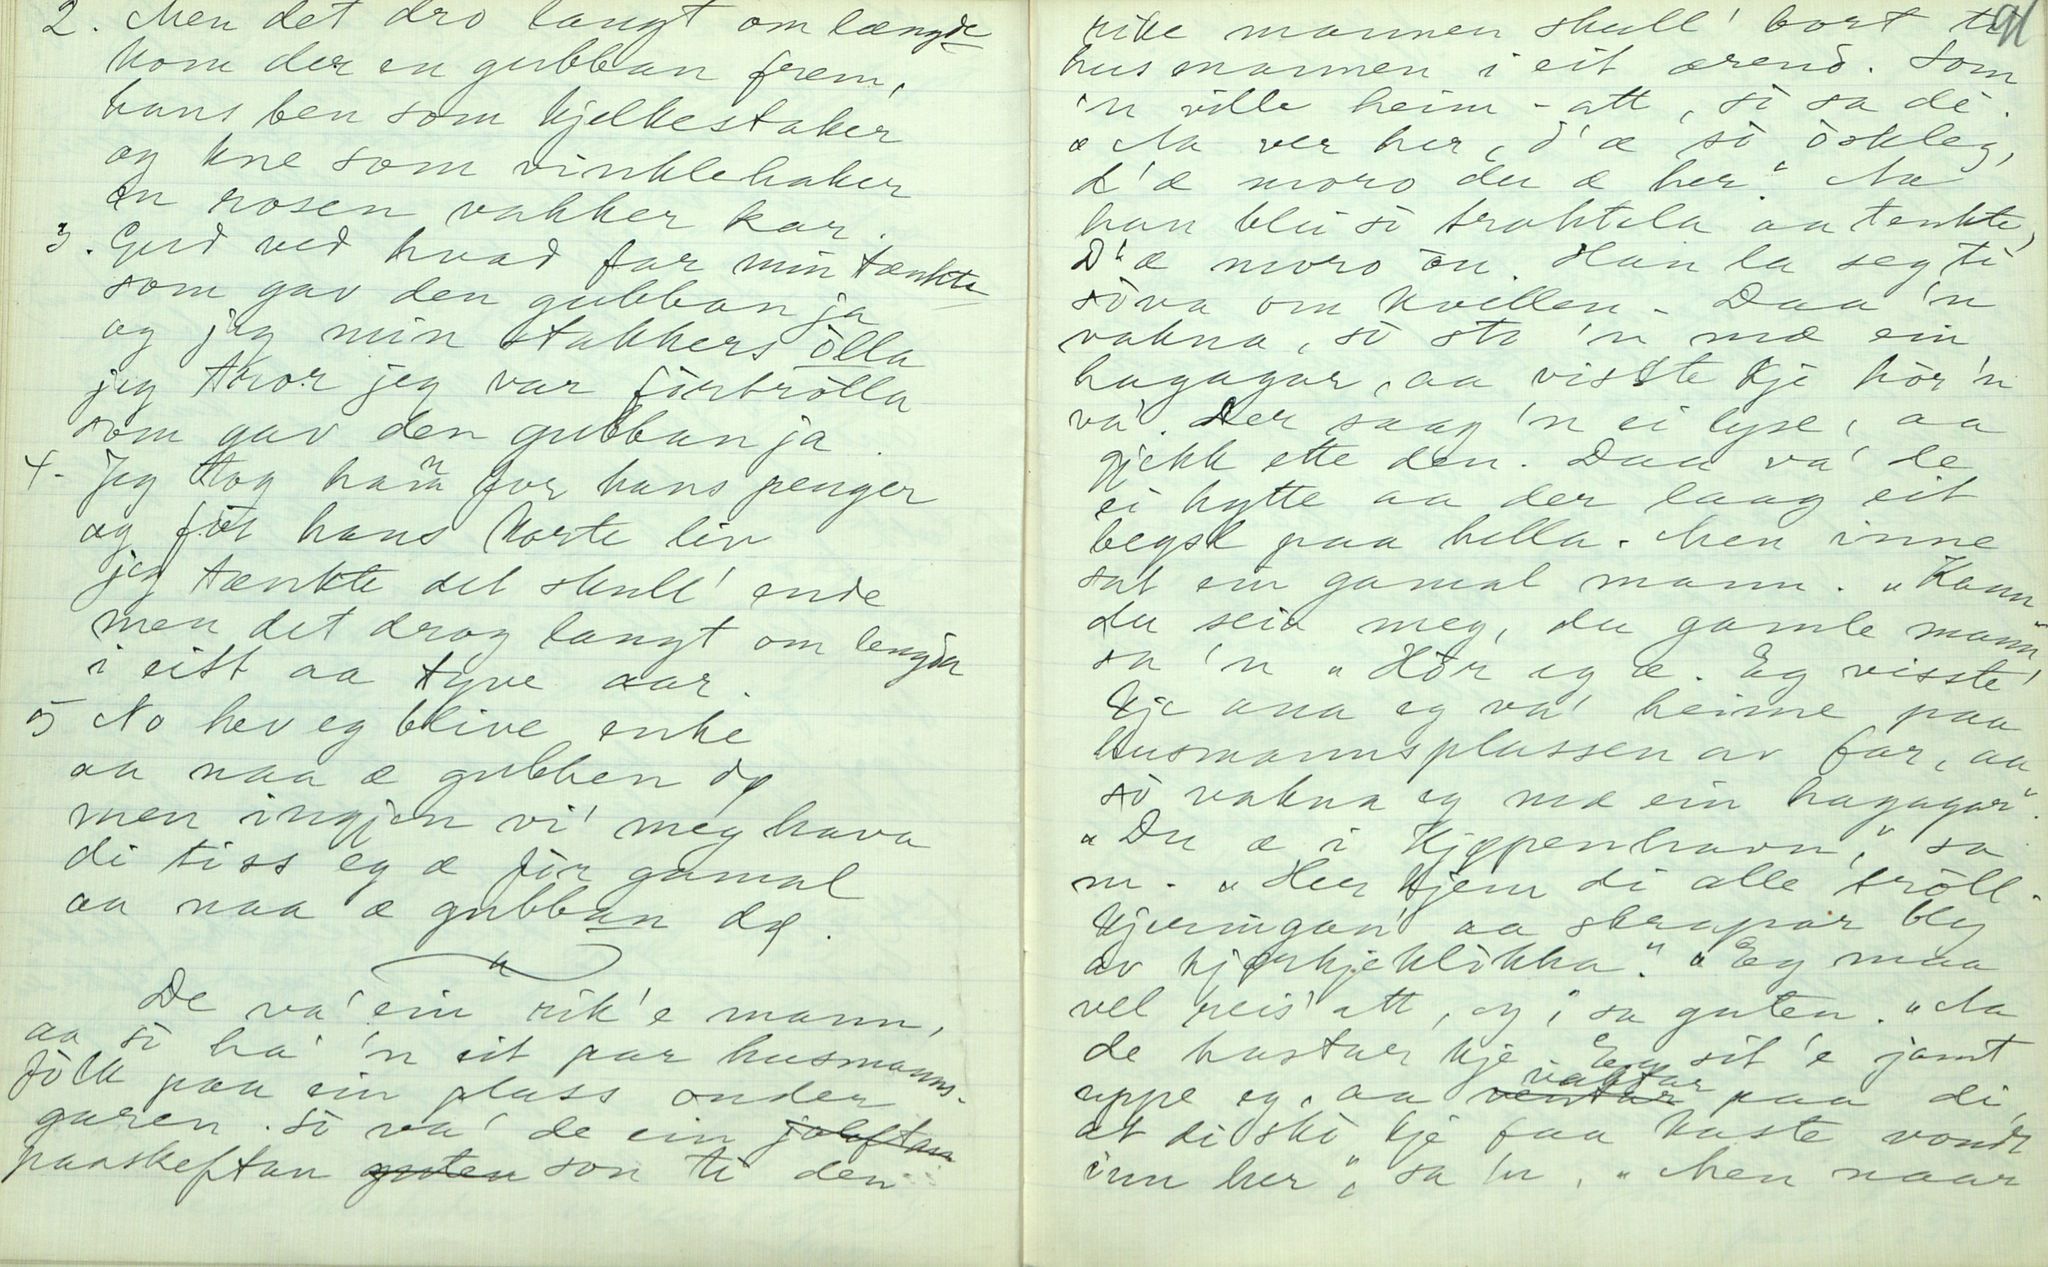 2. Men det dro langt om længde
kom der en gubban frem,
hans ben som kjelkestaker
og kne som vinklehaker
en rosen vakker kar.
3. Gud ved hvad far min tænkte
som gav den gubban ja
og jeg min stakkers ölla
jeg tror jeg var förtrölla
som gav den gubban ja.
4. Jeg tog hann for hans penger
og för hans korte liv
jeg tænkte det skull' ende
men det drog langt om lengda
i eitt aa tyve aar.
5 No hev eg blive enke
aa naa æ gubben dø
men ingjen vi' meg hava
di tiss eg æ för gamal
aa naa æ gubban dø.
De va' ein rik'e mann,
aa so ha' 'n eit par husmanns-
fölk paa ein plass under
garen. So va' de ein joleftan
paaskeftan guten son ti den
91
rike mannen skull' bort te
husmannen i eit ærend. Som
'n ville heim-att, so sa de.
"Aa ver her, d'æ so öskleg,
d'æ moro du æ her." Aa
han blei so traktela aa tenkte,
D'æ moro òu. Han la seg ti
sòva om kvillen. Daa 'n
vakna, so sto 'n mæ ein
hagagar, aa visste kje hòr 'n
va'. Der saag 'n ei lyse, aa
gjekk ette den. Daa va' de
ei hytte aa der laag eit
begsl paa hella. Men inne
sat ein gamal mann. "Kann
du seia meg, du gamle mann"
sa 'n "Hòr eg æ. Eg visste'
kje ana eg va' heime paa
husmannsplassen av far, aa
so vakna eg mæ ein hagagar".
"Du æ i Kjøppenhavn," sa
'n. "Her kjem di alle tröll-
kjeringan' aa skrapar bly
av kjørkjeklökka." "Eg maa
vel reis' att, eg," sa guten. "Aa
de hastar kje. Eg sit'e jamt
uppe eg, aa ventar vaktar paa di,
at di ski kje faa kaste vondt
inn her", sa 'n, "Men naar